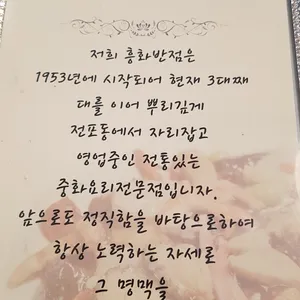 저희 흥화반점은
1953년에 시작되어 현재 3대째
대를 이어 뿌리깊게
전포동에서 자리잡고
영업중인 전통있는
중화요리전문점입니다.
앞으로도 정직함을 바탕으로하여
항상 노력하는 자세로
그 명맥을